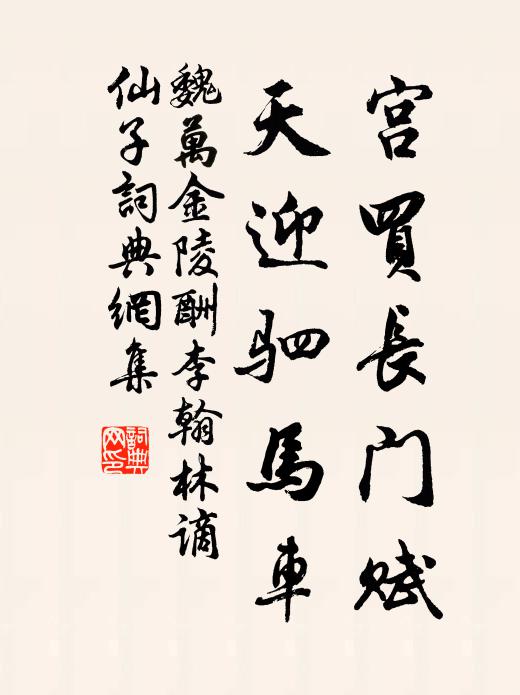 宫買長门赋
天迎驷馬車
魏萬金陵酬李翰林谪
仙子詞典網集
詞典网印